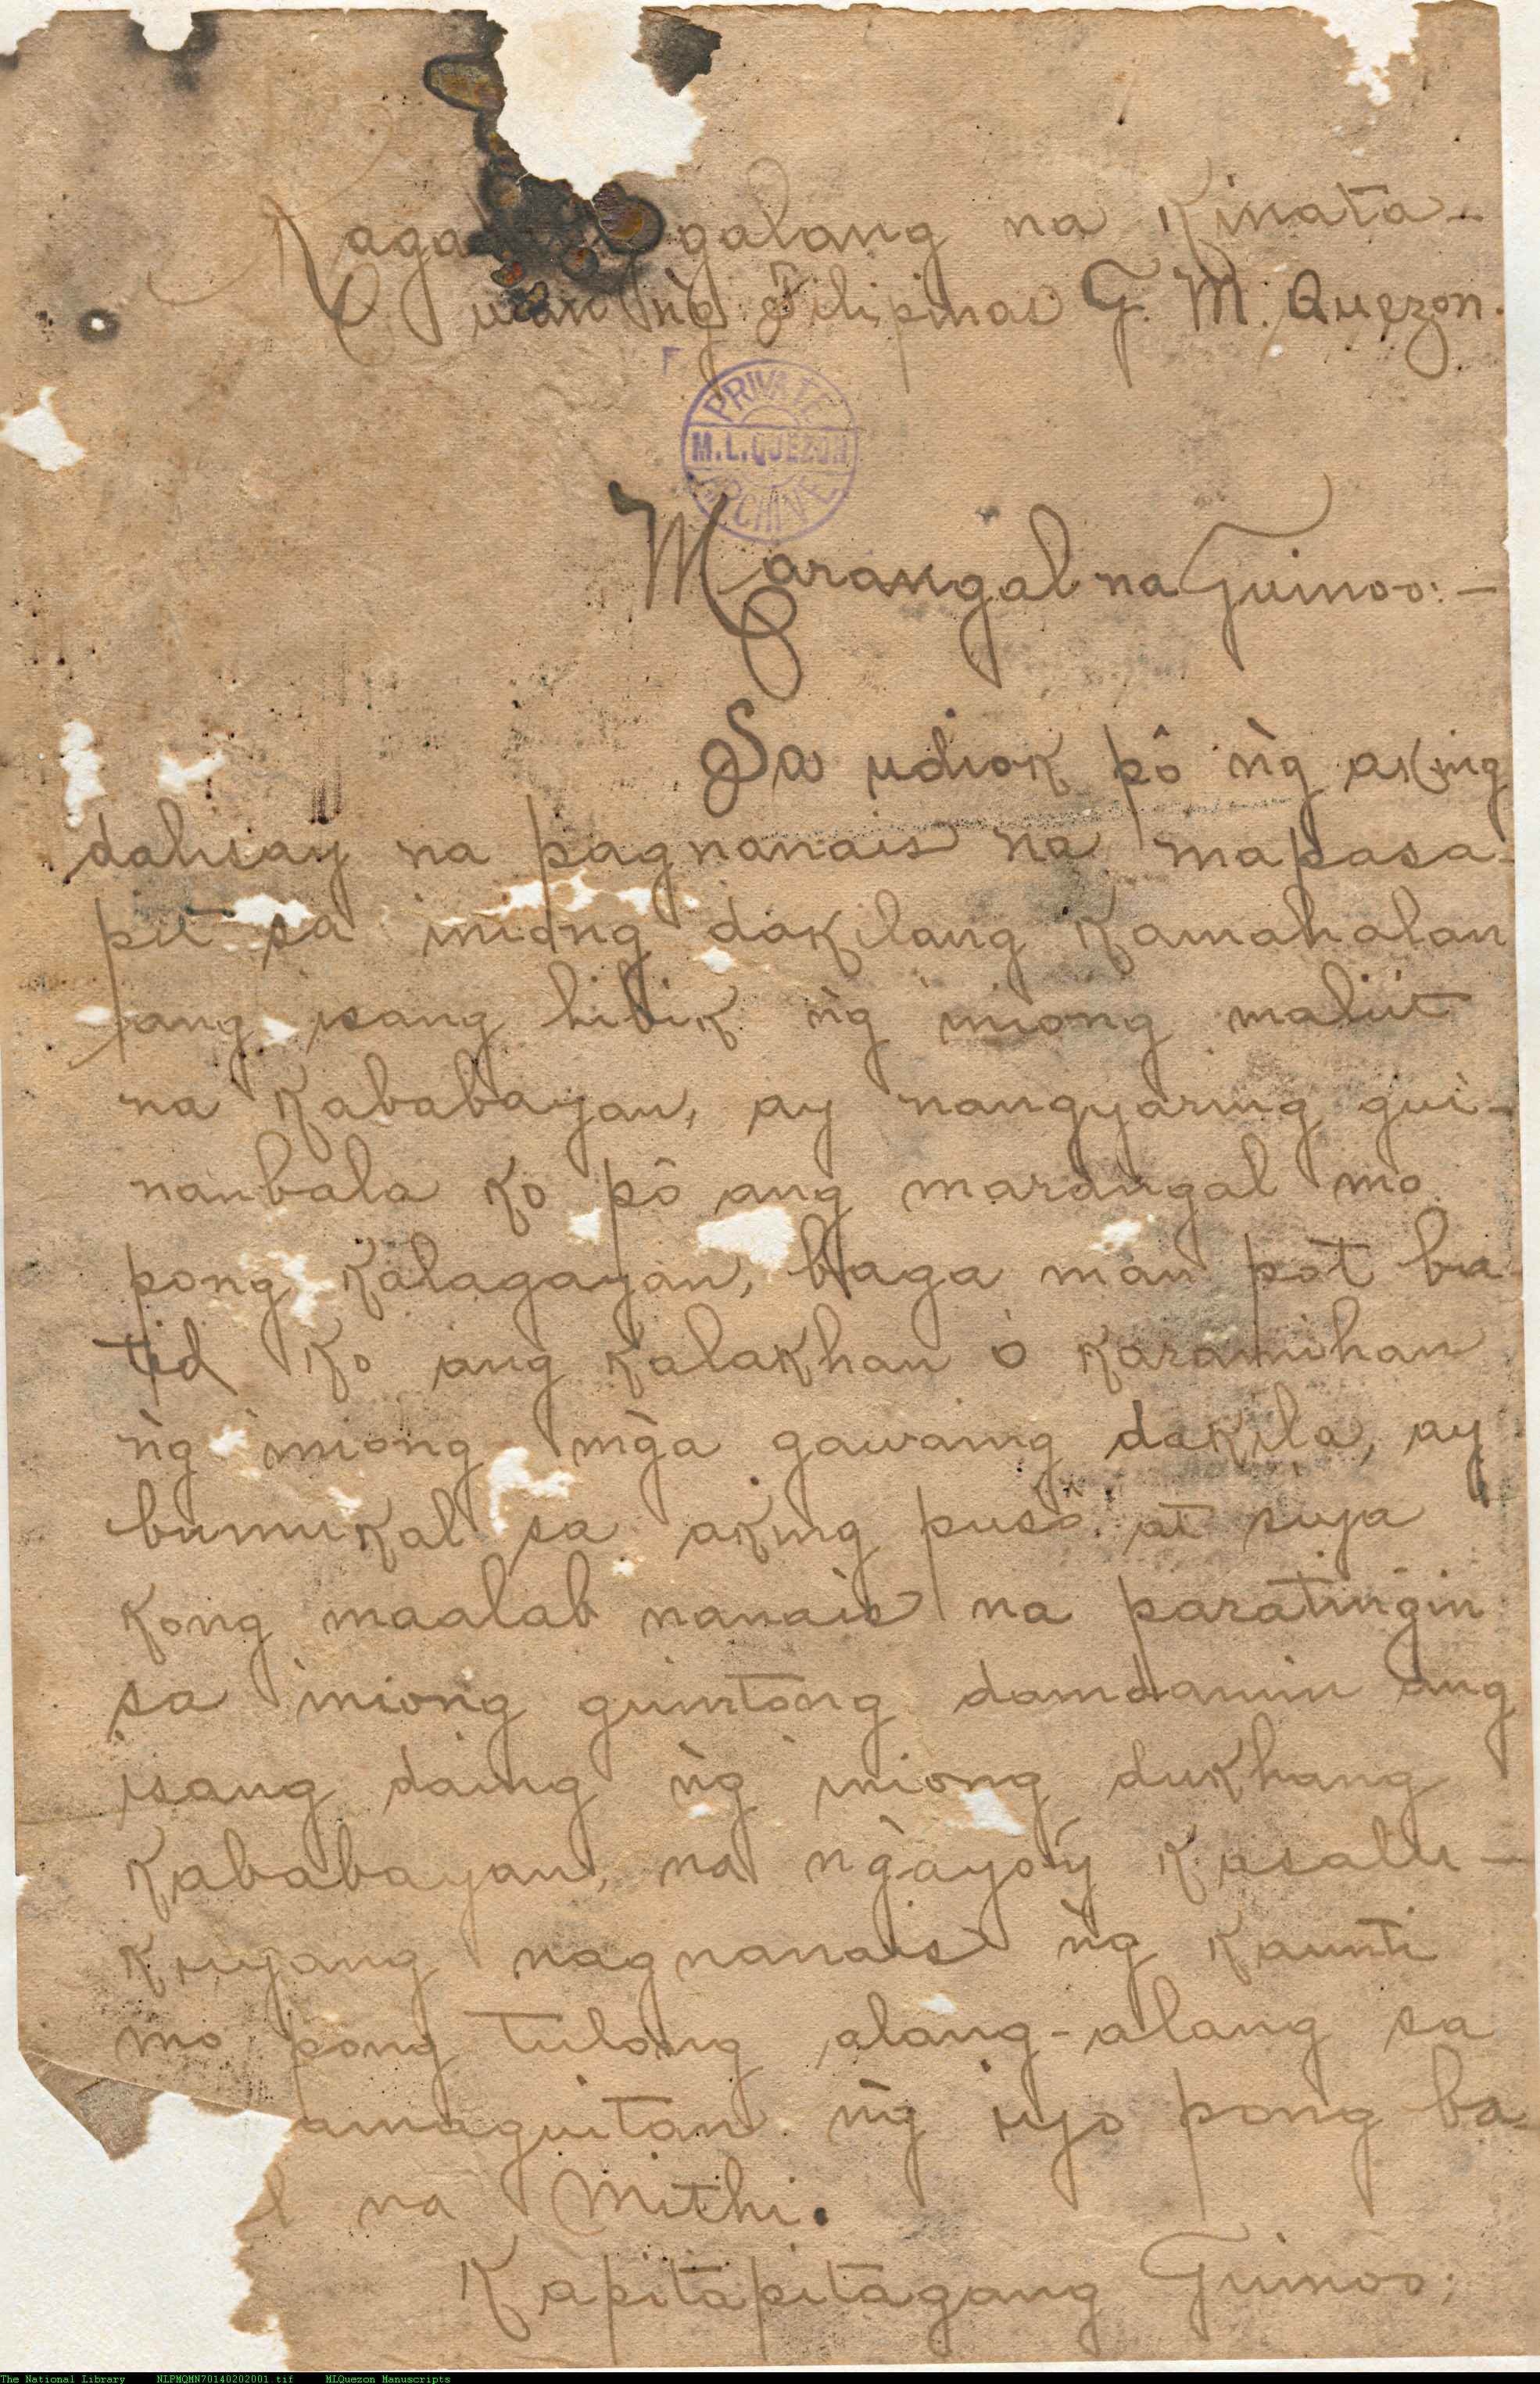 galang na Kinata-
wan ng̃ Filipinas G. M. Quezon.
PRIVATE
M.L.QUEZON
ARCHIVE
Marangal na Guinoo:-
Sa udiok pô ng̃ aking
dalisay na pagnanais na mapasa-
pit sa iniong dakilang Kamahalan
ang isang hibik ng̃ iniong maliit
na Kababayan, ay nangyaring gui-
nanbala ko pô ang marangal mo
pong Kalagayan, baga man pot ba-
tid ko ang Kalakhan ó Karamihan
ng̃ iniong mg̃a gawaing dakila, ay
bumukal sa aking pusô at suya
kong maalab nanais na parating̃in
sa iniong guintong damdamin ang
isang daing ng̃ iniong dukhang
Kababayan, na ng̃ayo'y kasalu-
kuyang nagnanais ng̃ kaunti
mo pong tulong alang-alang sa
amaguitan ng̃ iyo pong ba-
l na Mithi.
Kapitapitagang Guinoo;
The National Library NLPMQMN70140202001.tif MLQuezon Manuscripts